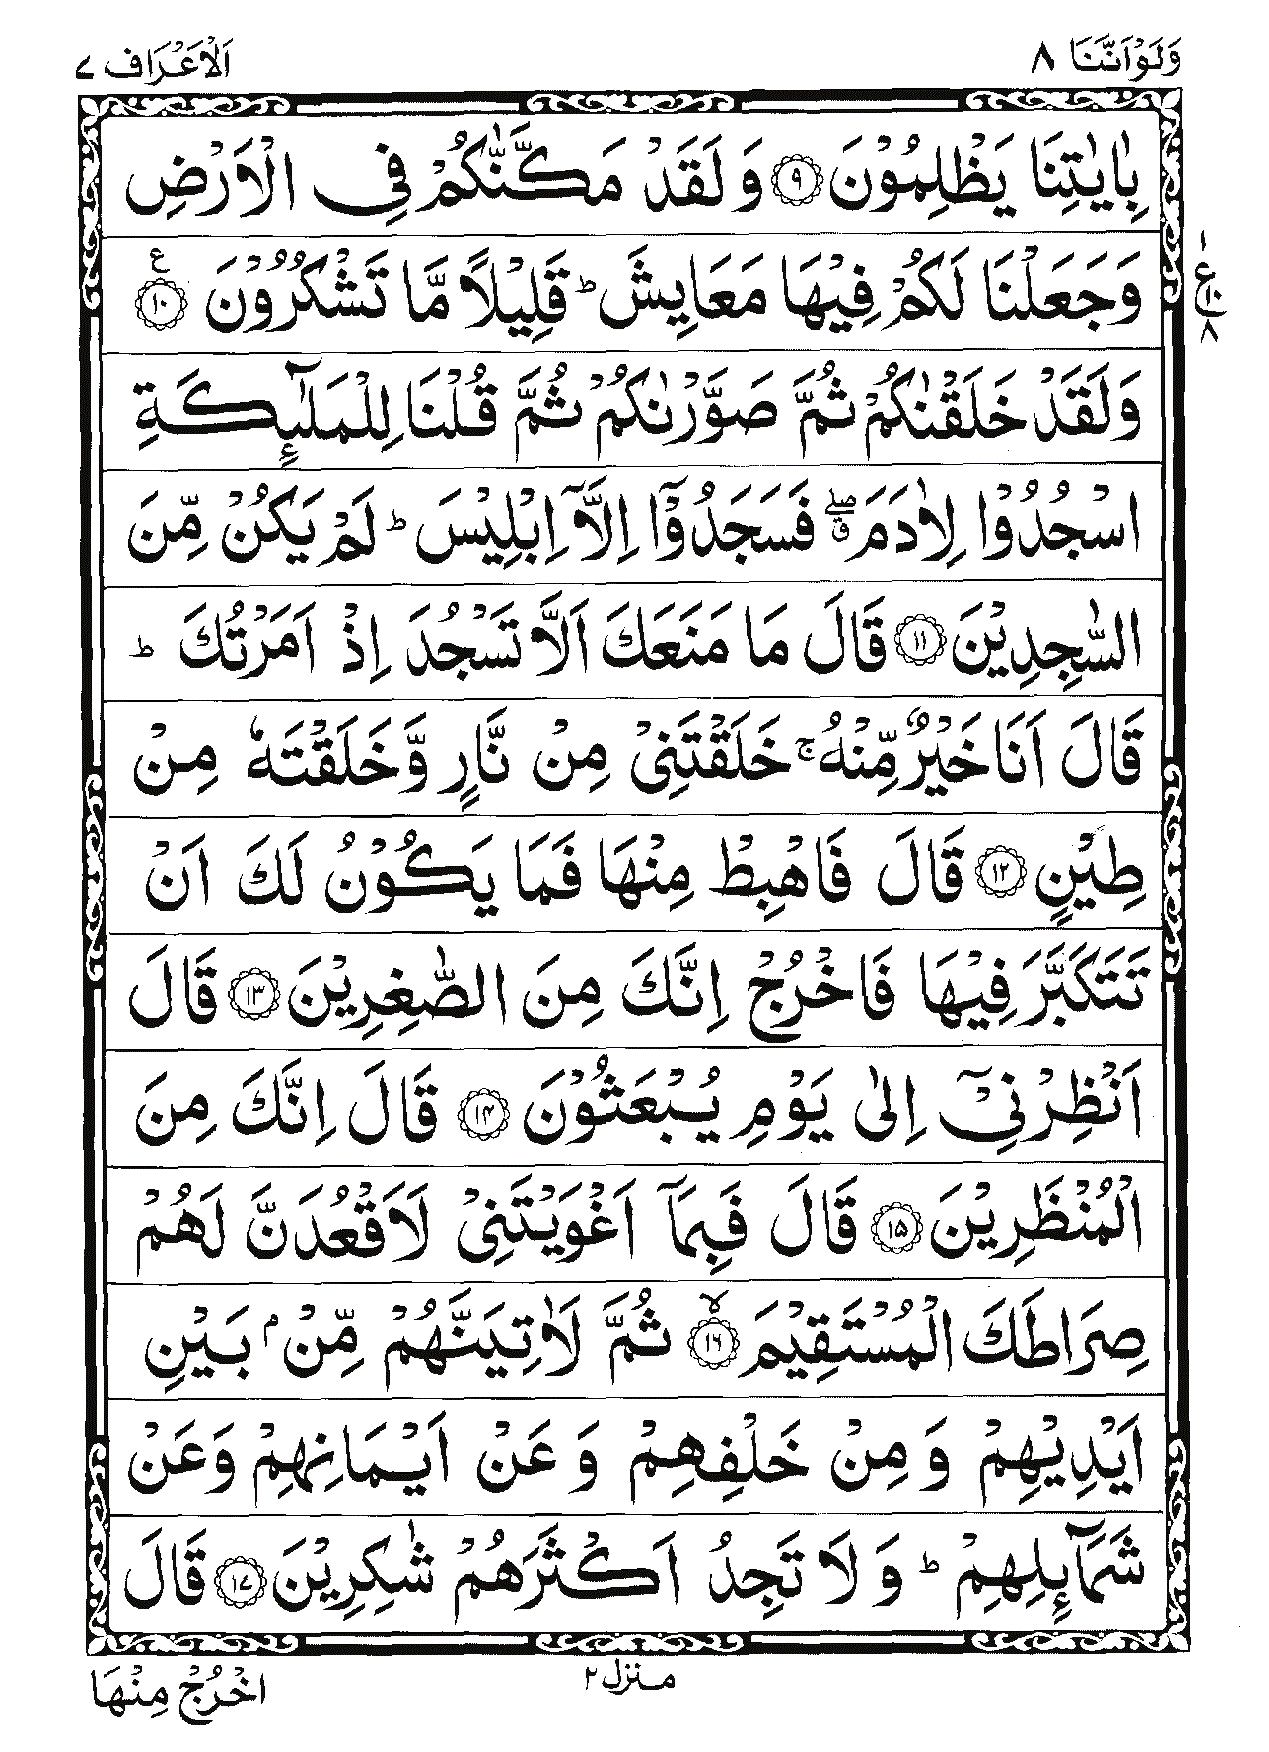 وَلَوْاَنَّنَا ٨
اَلْاَعْرَاف ٧
بِاٰيٰتِنَا يَظْلِمُوْنَ ۹ وَ لَقَدْ مَكَّنّٰكُمْ فِي الْاَرْضِ
وَجَعَلْنَا لَكُمْ فِيْهَا مَعَايِشَ ؕ قَلِيْلًا مَّا تَشْكُرُوْنَ ۱۰ ع
۱
ع ۱۰
۸
وَلَقَدْ خَلَقْنٰكُمْ ثُمَّ صَوَّرْنٰكُمْ ثُمَّ قُلْنَا لِلْمَلٰٓئِكَةِ
اسْجُدُوْا لِاٰدَمَ ۖق فَسَجَدُوْۤا اِلَّاۤ اِبْلِيْسَ ؕ لَمْ يَكُنْ مِّنَ
السّٰجِدِيْنَ ۱۱ قَالَ مَا مَنَعَكَ اَلَّا تَسْجُدَ اِذْ اَمَرْتُكَ ؕ
قَالَ اَنَا خَيْرٌ مِّنْهُ ۚ خَلَقْتَنِيْ مِنْ نَّارٍ وَّخَلَقْتَهٗ مِنْ
طِيْنٍ ۱۲ قَالَ فَاهْبِطْ مِنْهَا فَمَا يَكُوْنُ لَكَ اَنْ
تَتَكَبَّرَ فِيْهَا فَاخْرُجْ اِنَّكَ مِنَ الصّٰغِرِيْنَ ۱۳ قَالَ
اَنْظِرْنِيْۤ اِلٰى يَوْمِ يُبْعَثُوْنَ ۱۴ قَالَ اِنَّكَ مِنَ
الْمُنْظَرِيْنَ ۱۵ قَالَ فَبِمَاۤ اَغْوَيْتَنِيْ لَاَقْعُدَنَّ لَهُمْ
صِرَاطَكَ الْمُسْتَقِيْمَ ۱۶ ۙ ثُمَّ لَاٰتِيَنَّهُمْ مِّنْۢ بَيْنِ
اَيْدِيْهِمْ وَ مِنْ خَلْفِهِمْ وَ عَنْ اَيْمَانِهِمْ وَعَنْ
شَمَآئِلِهِمْ ؕ وَ لَا تَجِدُ اَكْثَرَهُمْ شٰكِرِيْنَ ۱۷ قَالَ
منزل ۲
اخْرُجْ مِنْهَا